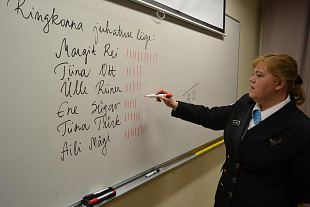 Ringkonna juhatuse liige:
Margit Rei
Tiina Ott
Ülle Reimer
Ene
Tiina Tiirk
Aili Mägi